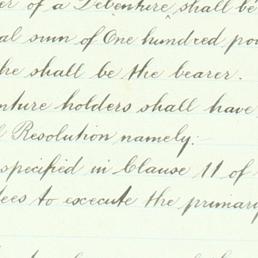 er of a Debenture shall be
al sum of One hundred pou
he shall be the bearer.
nture holders shall have
l Resolution namely:
specified in Clause 11 of
ees to excecute the primary